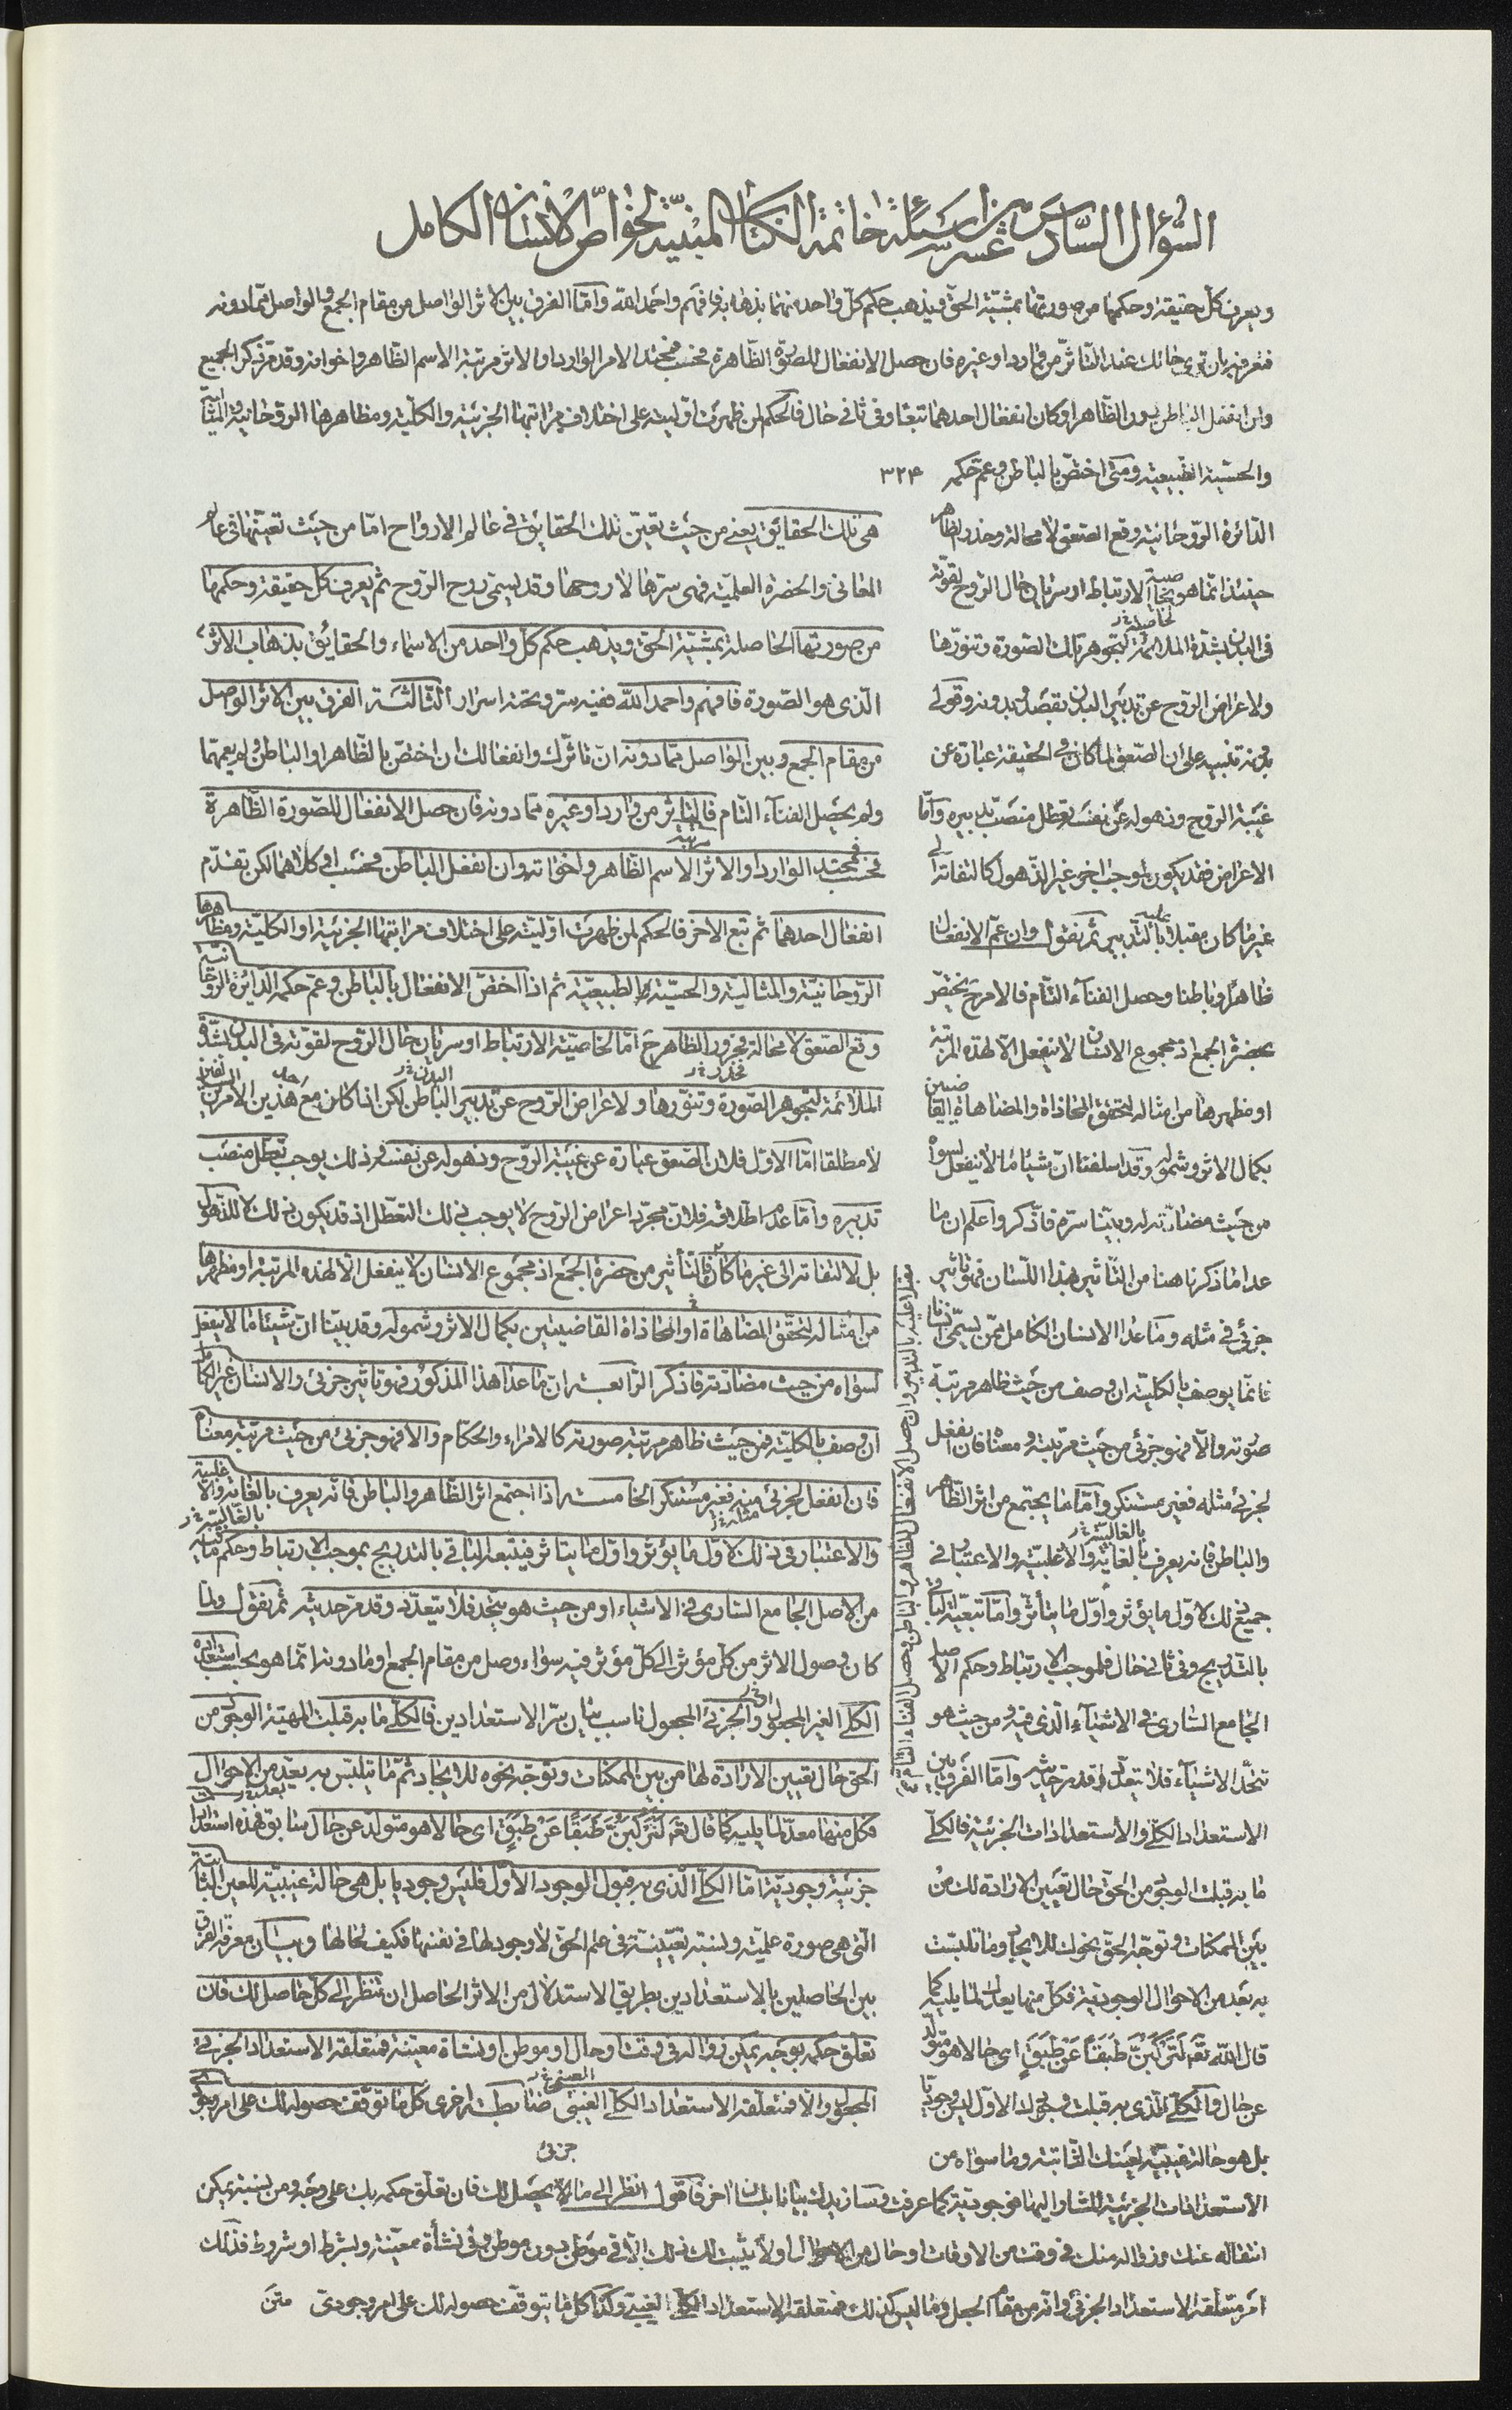 السّؤال السّادس عشر من اسئلة خاتمة الكتاب المبنيّة لخواصّ الانسان الكامل
ويعرف كلّ حقيقة وحكمها من صورتها بمشيّة الحقّ ويذهب حكم كلّ واحد منهما بذهابه فافهم واحمد الله وامّا الفرق بين الاثر الواصل من مقام الجمع والواصل ممّا دونه
فتعرفه بان ترى حالك عند التأثّر من وارد او غيره فان حصل الانفعال للصّورة الظّاهرة فحسب فمحتد الامر الوارد او الاثر مرتبة الاسم الظّاهر واخواته وقد مرّ ذكر الجميع
وان انفعل الباطن دون الظّاهر او كان انفعال احدهما تبعا وفى ثانى حال فالحكم لمن ظهرت اوليته على اختلاف مراتبها الجزئيّة والكلّيّة ومظاهرها الروحانيّة والمثاليّة
والحسّيّة الطّبيعيّة ومتى اختصّ بالباطن وعمّ حكمه ٣٢۴
الدّائرة الرّوحانيّة وقع الصّعق لا محالة وخدر الظّاهر
حينئذ انّما هو لخاصيّة الارتباط او سريان حال الرّوح لقوّته
فى البدن لشدّة الملائمة الحاصلة لتجوهر تلك الصّورة وتنوّرها
ولاعراض الرّوح عن تدبير البدن بقصد وبدونه وقولى
بدونه تنبيه على ان الصّعق لمّا كان فى الحقيقة عبارة عن
غيبة الرّوح وذهوله عن نفسه تعطّل منصب تدبيره وامّا
الاعراض فقد يكون لموجب اخر غير الذّهول كالتفاته الى
غير ما كان مقبلا عليه بالتّدبير ثمّ نقول وان عمّ الانفعال
ظاهرا وباطنا وحصل الفناء التّام فالامر ح يختصّ
بحضرة الجمع اذ مجموع الانسان لا ينفعل الّا لهذه المرتبة
او مظهرها من امثاله لتحقق المحاذاة والمضاهاة القاضيين
بكمال الاثر وشموله وقد اسلفنا انّ شيئا ما لا ينفعل لسواه
من حيث مضادّته له وبيّنّا سرّه فاذكر واعلم ان ما
عدا ما ذكرنا هنا من التّاثير بهذا اللّسان فهو تاثير
جزئىّ فى مثله وما عدا الانسان الكامل ممّن يسمّى انسانا
فانّما يوصف بالكليّة ان وصف من حيث ظاهر مرتبة
صورته والّا فهو جزئىّ من حيث مرتبته ومعناه فان انفعل
لجزئىّ مثله فغير مستنكر وامّا ما يجتمع من اثر الظّاهر
والباطن فانه يعرف بالغالبيّة والاغلبيّة والاعتبار فى
جميع ذلك لاوّل ما يؤثّر واوّل ما يتأثّر وامّا تبعيّة الباقى
بالتّدريج وفى ثانى حال فلموجب الارتباط وحكم الاصل
الجامع السّارى فى الاشياء الّذى فيه ومن حيث هو
تتّحد الاشياء فلا تتعدّد وقد مرّ حديثه وامّا الفرق بين
الاستعداد الكلّى والاستعدادات الجزئيّة فالكلّى
ما به قبلت الوجود من الحقّ حال تعيين الارادة لك من
بين الممكنات وتوجّه الحقّ نحوك للايجاد وما تلبّست
به بعد من الاحوال الوجوديّة فكلّ منها يعدّك لما يليه كما
قال الله تعم لَتَرْكَبُنَّ طَبَقًا عَنْ طَبَقٍ اى حالا هو متولّد
عن حال والكلّى الّذى به قبلت وجودك الاوّل ليس وجوديّا
بل هو حالة غيبيّة لعينك الثّابتة وما سواه من
هى تلك الحقايق يعنى من حيث تعيّن تلك الحقايق فى عالم الارواح امّا من حيث تعيّنها فى عالم
المعانى والحضرة العلميّة فهى سرّها لا روحها وقد يسمّى روح الرّوح ثم يعرف كلّ حقيقة وحكمها
من صورتها الحاصلة بمشيّة الحقّ ويذهب حكم كلّ واحد من الاسماء والحقايق بذهاب الاثر
الّذى هو الصّورة فافهم واحمد الله ففيه سرّ وتحته اسرار الثّالثة الفرق بين الاثر الواصل
من مقام الجمع وبين الواصل ممّا دونه انّ تاثّرك وانفعالك ان اختصّ بالظّاهر او الباطن ولم يعمّهما
ولم يحصل الفناء التّام فالتاثر من وارد او غيره ممّا دونه فان حصل الانفعال للصّورة الظّاهرة
فحسب فمحتد الوارد او الاثر مرتبة الاسم الظّاهر واخواته وان انفعل الباطن فحسب او كلاهما لكن تقدّم
انفعال احدهما ثم تبع الاخر فالحكم لمن ظهرت اوّليته على اختلاف مراتبها الجزئية او الكليّة ومظاهرها
الرّوحانيّة والمثاليّة والحسيّة الطبيعيّة ثم اذا اختصّ الانفعال بالباطن وعمّ حكمه الدائرة الرّوحانيّة
وقع الصّعق لا محالة فخدور الظّاهر ح امّا لخاصيّة الارتباط او سريان حال الرّوح لقوّته فى البدن لشدّة
الملائمة لتجوهر الصّورة وتنوّرها ولاعراض الرّوح عن تدبير الباطن لكن اذا كان مع احد هذين الامرين
لا مطلقا امّا الاوّل فلان الصّعق عبارة عن غيبة الرّوح وذهوله عن نفسه وذلك يوجب تعطّل منصب
تدبيره وامّا عدم اطلاقه فلانّ مجرّد اعراض الرّوح لا يوجب ذلك التعطّل اذ قد يكون ذلك لا للذهول
بل لالتفاته الى غير ما كان فالتّأثير من حضرة الجمع اذ مجموع الانسان لا ينفعل الّا لهذه المرتبة او مظهرها
من امثاله لتحقّق المضاهاة او المحاذاة القاضيتين بكمال الاثر وشموله وقد بيّنّا انّ شيئا ما لا ينفعل
لسواه من حيث مضادّته فاذكر الرّابعة ان ما عدا هذا المذكور فهو تاثير جزئى والانسان غير الكامل
ان وصف بالكلّيّة فمن حيث ظاهر مرتبة صورته كالامراء والحكّام والّا فهو جزئى من حيث مرتبة معناه
فان انفعل لجزئى مثله فغير مستنكر الخامسة اذا اجتمع اثر الظّاهر والباطن فانّه يعرف بالغالبيّة والاغلبيّة
والاعتبار فى ذلك لاوّل ما يؤثر واوّل ما يتاثر فيتبعه الباقى بالتدريج بموجب الارتباط وحكم ما فيه
من الاصل الجامع السّارى فى الاشياء او من حيث هو يتّحد فلا يتعدّد وقد مرّ حديثه ثم نقول ولمّا
كان وصول الاثر من كلّ مؤثّر الى كلّ مؤثّر فيه سواء وصل من مقام الجمع او ما دونه انّما هو بحسب استعداده
الكلّى الغير المجعول او الجزئى المجعول ناسب بيان سرّ الاستعدادين فالكلّى ما به قبلت المهيّة الوجود من
الحق حال تعيين الارادة لها من بين الممكنات وتوجّه نحوه للايجاد ثمّ ما يتلبّس به بعد من الاحوال
فكل منها معدّ لما يليه كما قال تعم لَتَرْكَبُنَّ طَبَقًا عَنْ طَبَقٍ اى حالا هو متولّد عن حال سابق فهذه استعدادات
جزئيّة وجوديّة امّا الكلّى الّذى به قبول الوجود الاوّل فليس وجوديا بل هى حالة غيبيّة للعين الثابتة
التى هى صورة علميّة ونسبة تعيّنيّة فى علم الحق لا وجود لها فى نفسها فكيف لحالها وبيان معرفة الفرق
بين الحاصلين بالاستعدادين بطريق الاستدلال من الاثر الحاصل ان تنظر الى كل حاصل لك فان
تعلّق حكمه بوجه يمكن زواله فى وقت او حال او موطن او نشاة معيّنة فمتعلقه الاستعداد الجزئى
المجعول والّا فمتعلّقه الاستعداد الكلّى الغيبى ضابطة اخرى كلّ ما توقّف حصوله لك على امر وجودى
الاستعدادات الجزئيّة المشار اليها فوجوديّة كما عرفت وسازيدك بيانا بلسان اخر فاقول انظر الى ما يحصل لك فان تعلّق حكمه بك على وجه ومن نسبة يمكن
انتقاله عنك وزواله منك فى وقت من الاوقات او حال من الاحوال او لا يثبت لك ذلك الّا فى موطن دون موطن وفى نشأة معيّنة وبشرط او شروط فذلك
امر متعلّقه الاستعداد الجزئى وانّه من مقام الجعل وما ليس كذلك فمتعلقه الاستعداد الكلّى الغيبى وكذا كلّ ما يتوقّف حصوله لك على امر وجودىّ متن